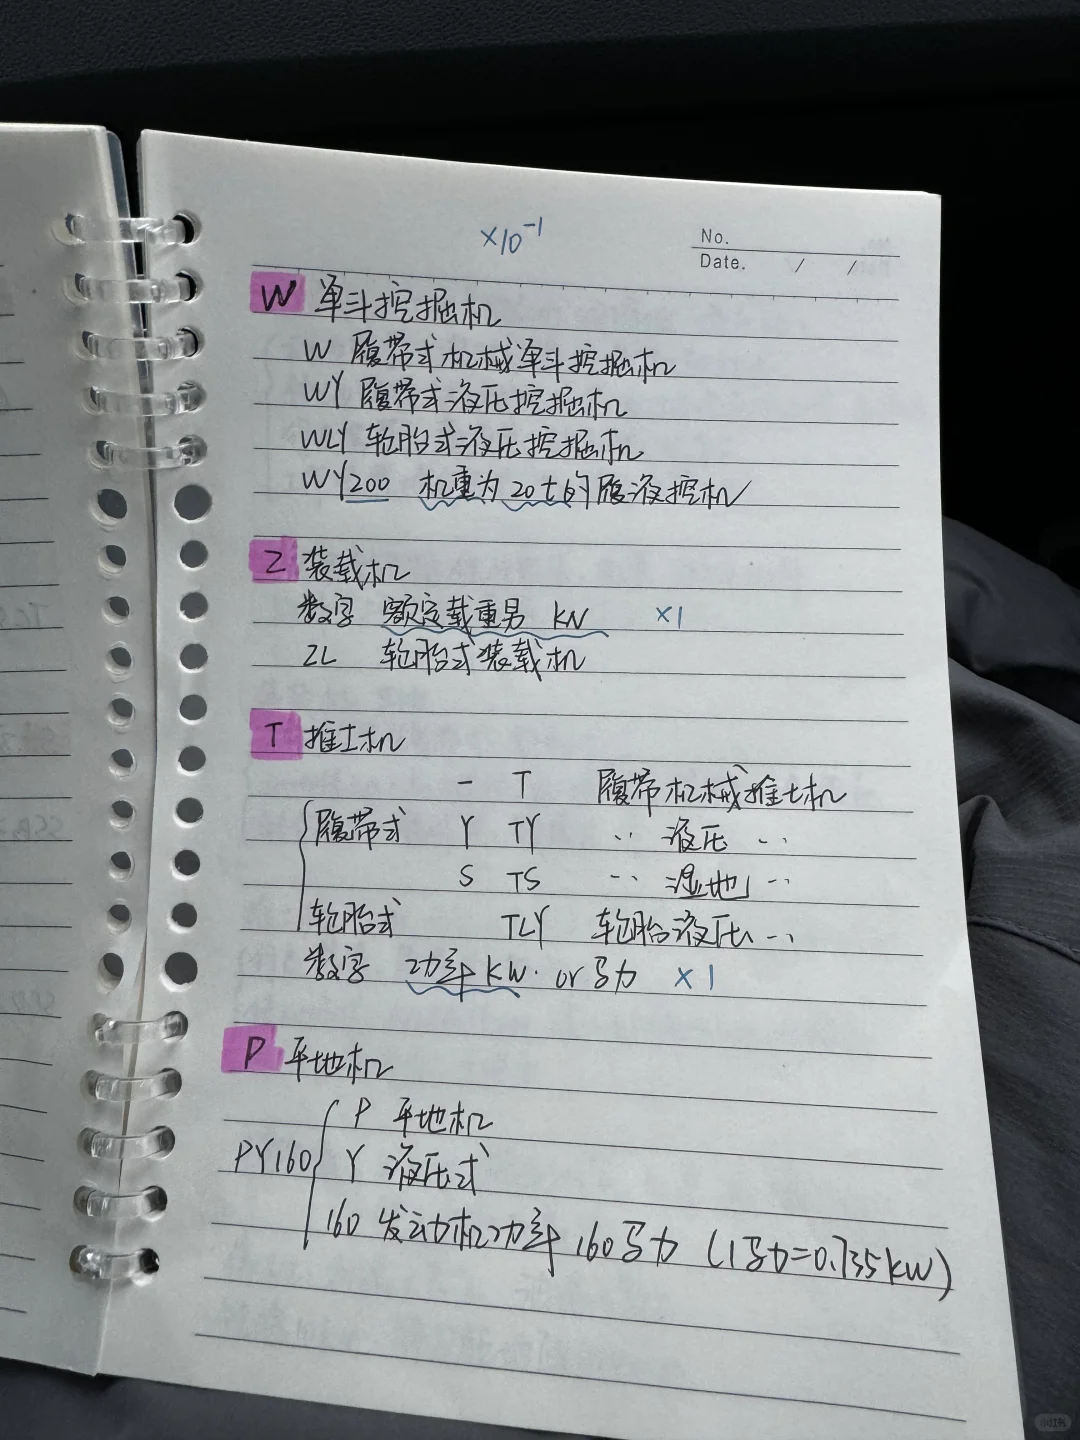 ×10⁻¹
No.
Date. / /
W 单斗挖掘机
W 履带式机械单斗挖掘机
WY 履带式液压挖掘机
WLY 轮胎式液压挖掘机
WY200 机重为20t的履液挖机
Z 装载机
数字 额定载重量 kN ×1
ZL 轮胎式装载机
T 推土机
- T 履带机械推土机
履带式 Y TY ·· 液压 ··
S TS ·· 湿地 ··
轮胎式 TLY 轮胎液压 ··
数字 功率 kW. or 马力 ×1
P 平地机
P 平地机
PY160 Y 液压式
160 发动机功率 160马力 (1马力=0.735kW)